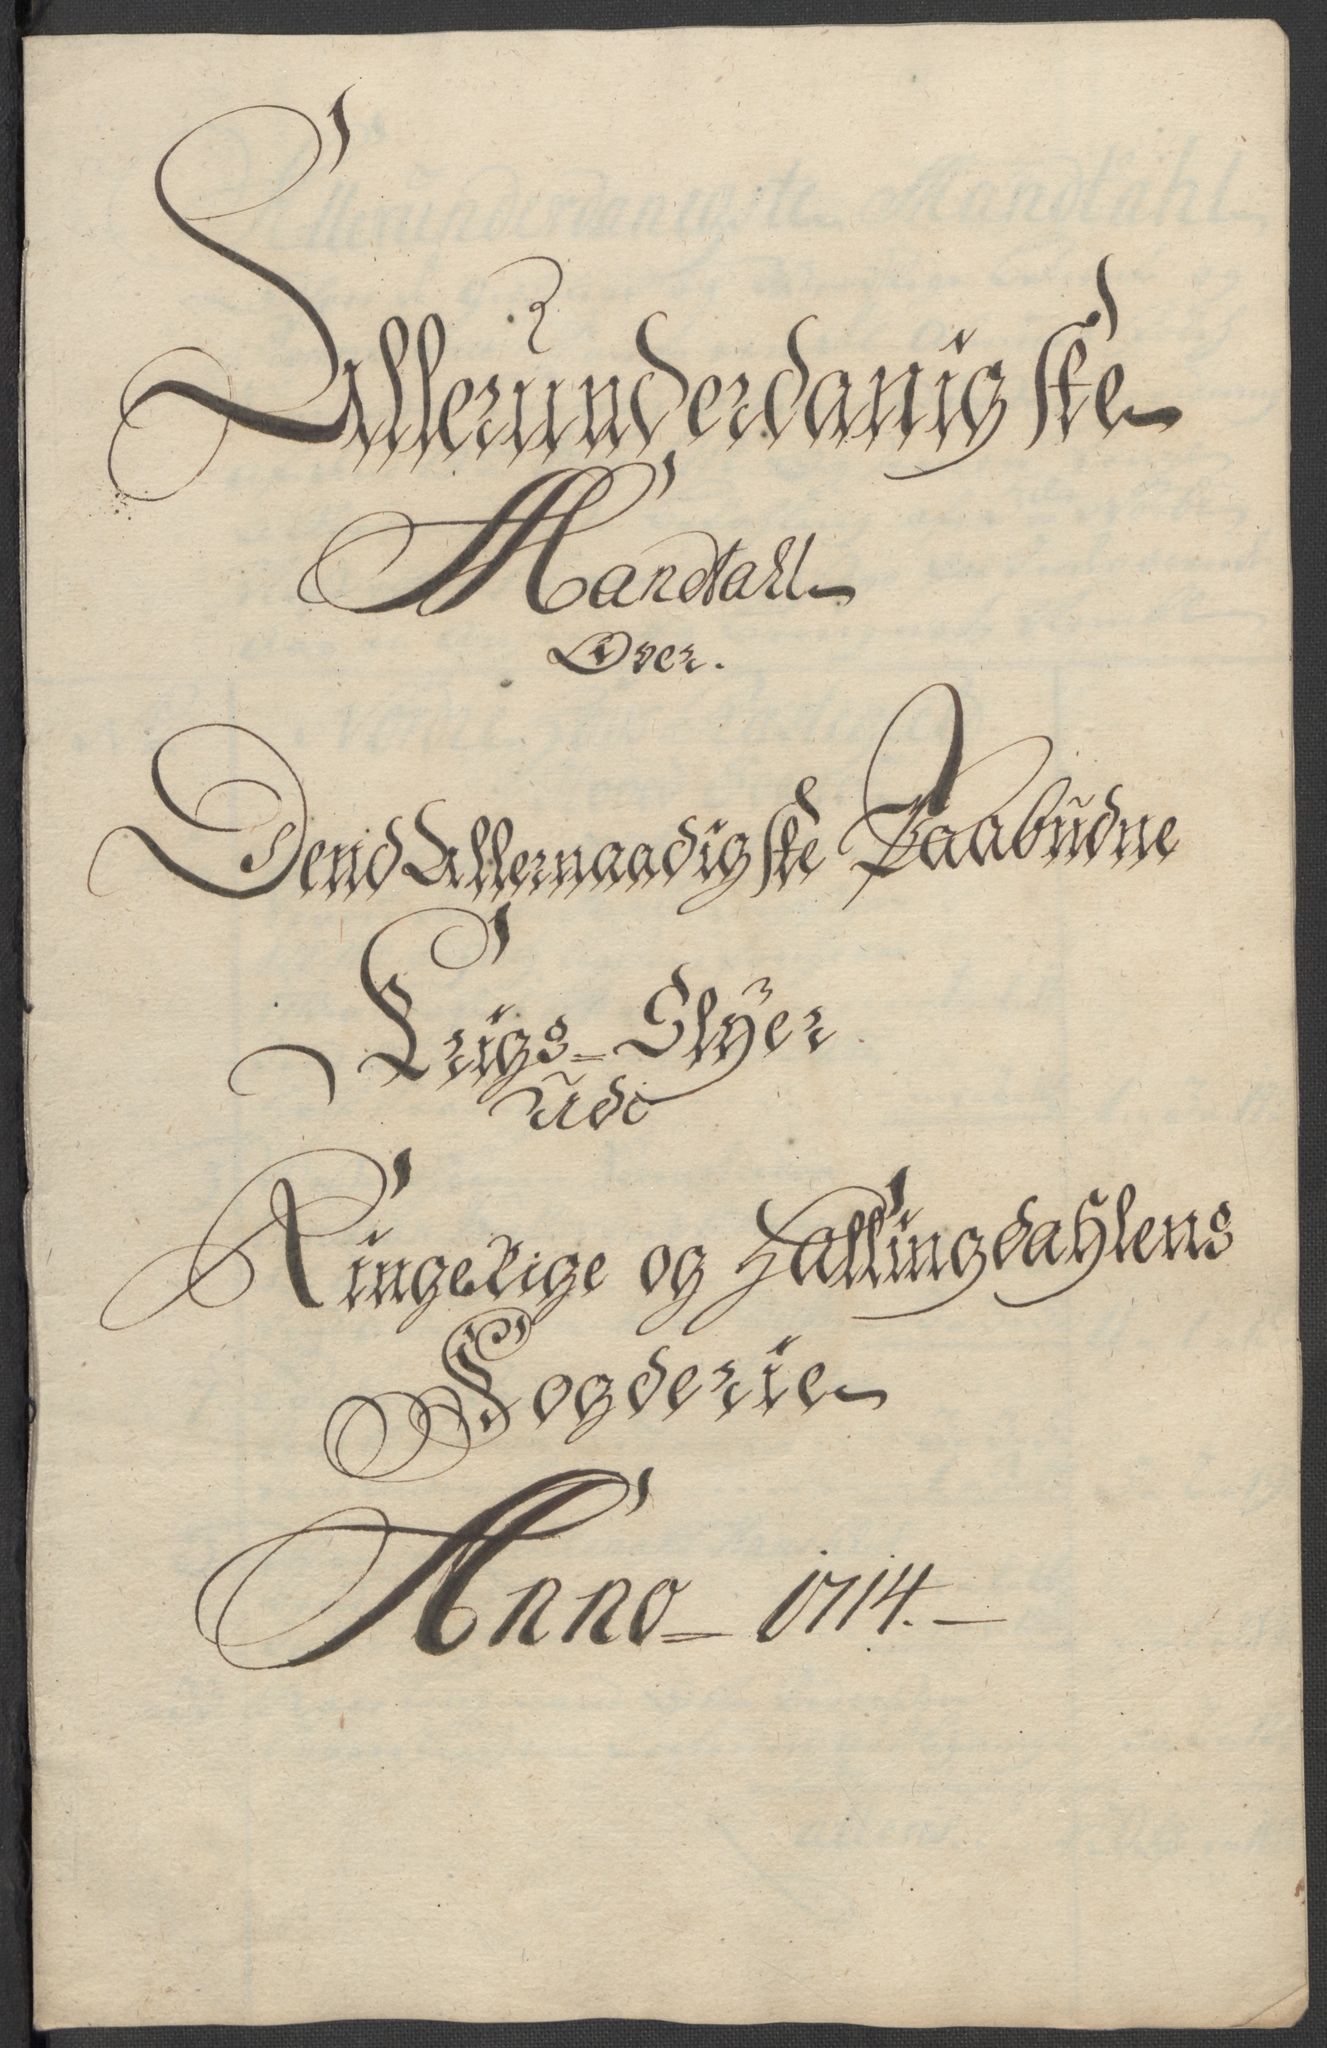 Allerunderdanigste
Mandtahl
Over.
Dend Allernaadigste Paabudne
Krigs=Styer
Udi
Ringerige og Hallingdahlens
Fogderie
Anno= 1714.